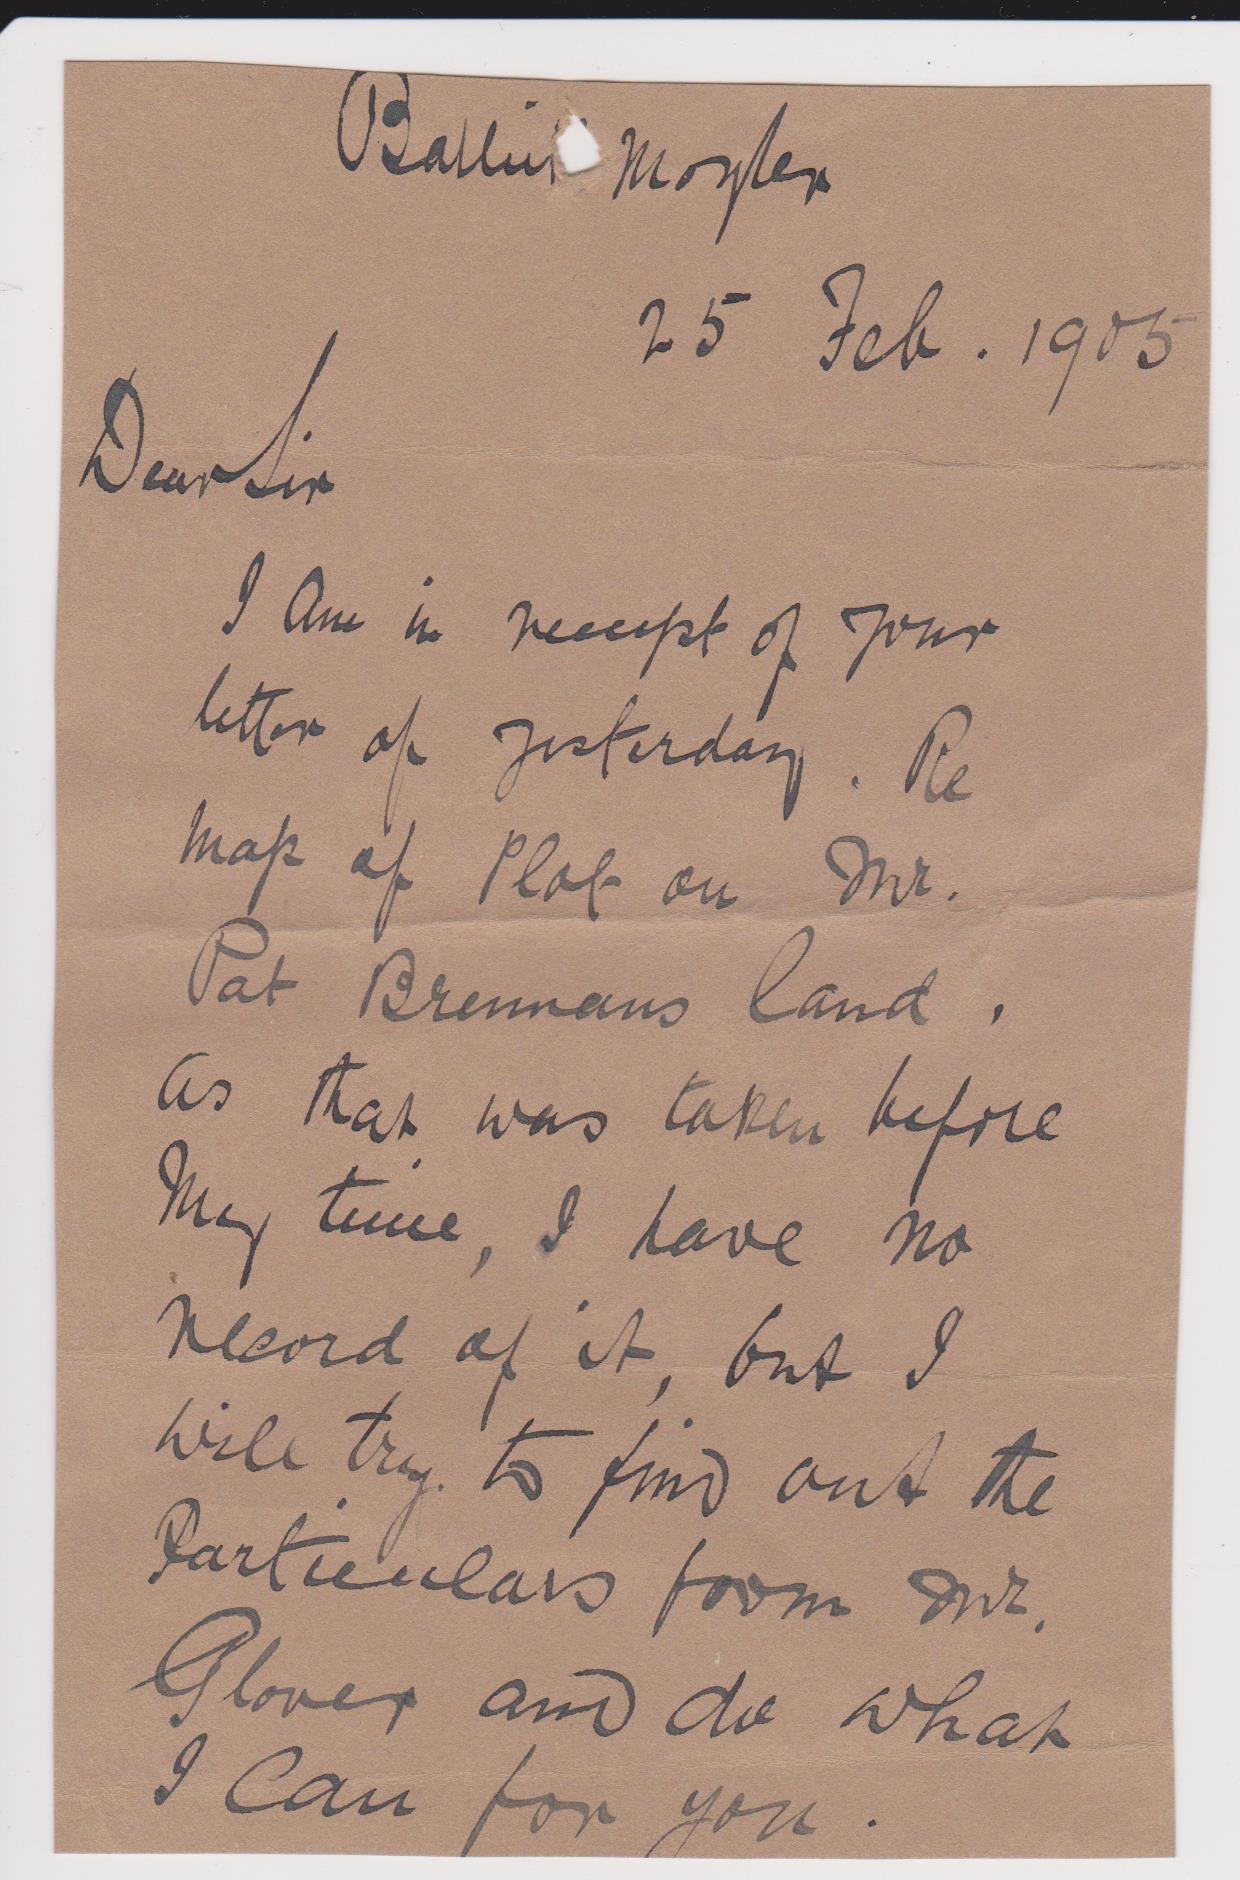 Ballin Moyler
25 Feb. 1905
Dear Sir
I Am in receipt of your
letter of yesterday. Re
Map of Plot on Mr.
Pat Brennans land,
as that was taken before
My time, I have no
record of it, but I
will try. to find out the
Particulars from Mr.
Glover and do what
I can for you.